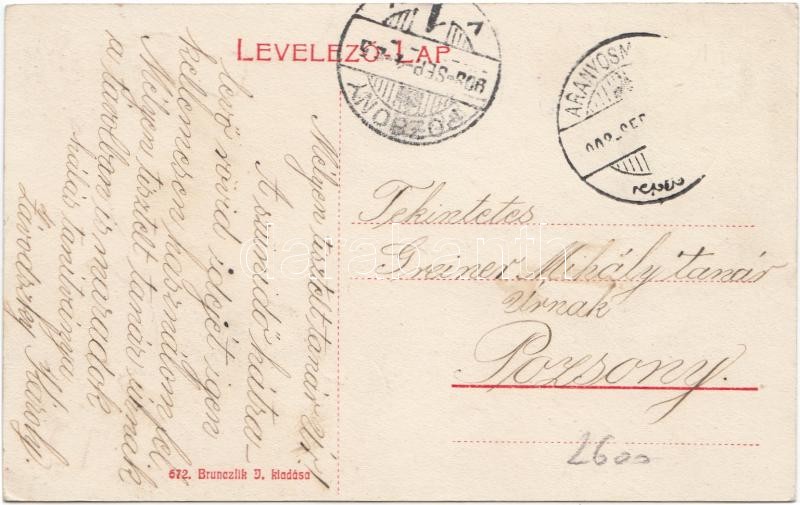 LEVELEZŐ-LAP
POZSONY
908-SEP
ARANYOSM
908-SEP
Mélyen tisztelt tanár Úr!
A szünidő hátra-
levő rövid idejét igen
kellemesen használom fel
Mélyen tisztelt tanár úrnak
a távolban is maradok
hálás tanítványa
Závodszky Károly.
Tekintetes
Greiner Mihály tanár
Úrnak
Pozsony.
2600
672. Brunczlik J. kiadása
darabanth.com